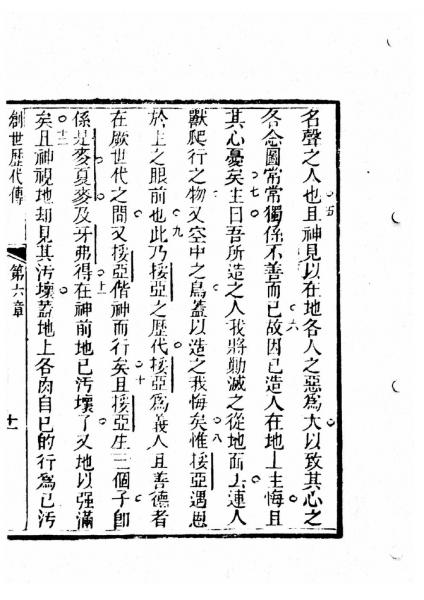 名聲之人也且神見以在地各人之惡為大以致其心之
五
各念圖常常獨係不善而已故因已造人在地上主悔且
六
其心憂矣主曰吾所造之人我將勦滅之從地面去連人
七
獸爬行之物又空中之鳥蓋以造之我悔矣惟挼亞遇恩
八
於主之眼前也此乃挼亞之歷代挼亞為義人且善德者
九
在厥世代之間又挼亞偕神而行矣且挼亞生三個子即
十
係是麥夏麥及牙弗得在神前地已汚壞了又地以强滿
十一
矣且神視地却見其汚壞蓋地上各肉自已的行為已汚
十二
創世歷代傳
第六章
十一